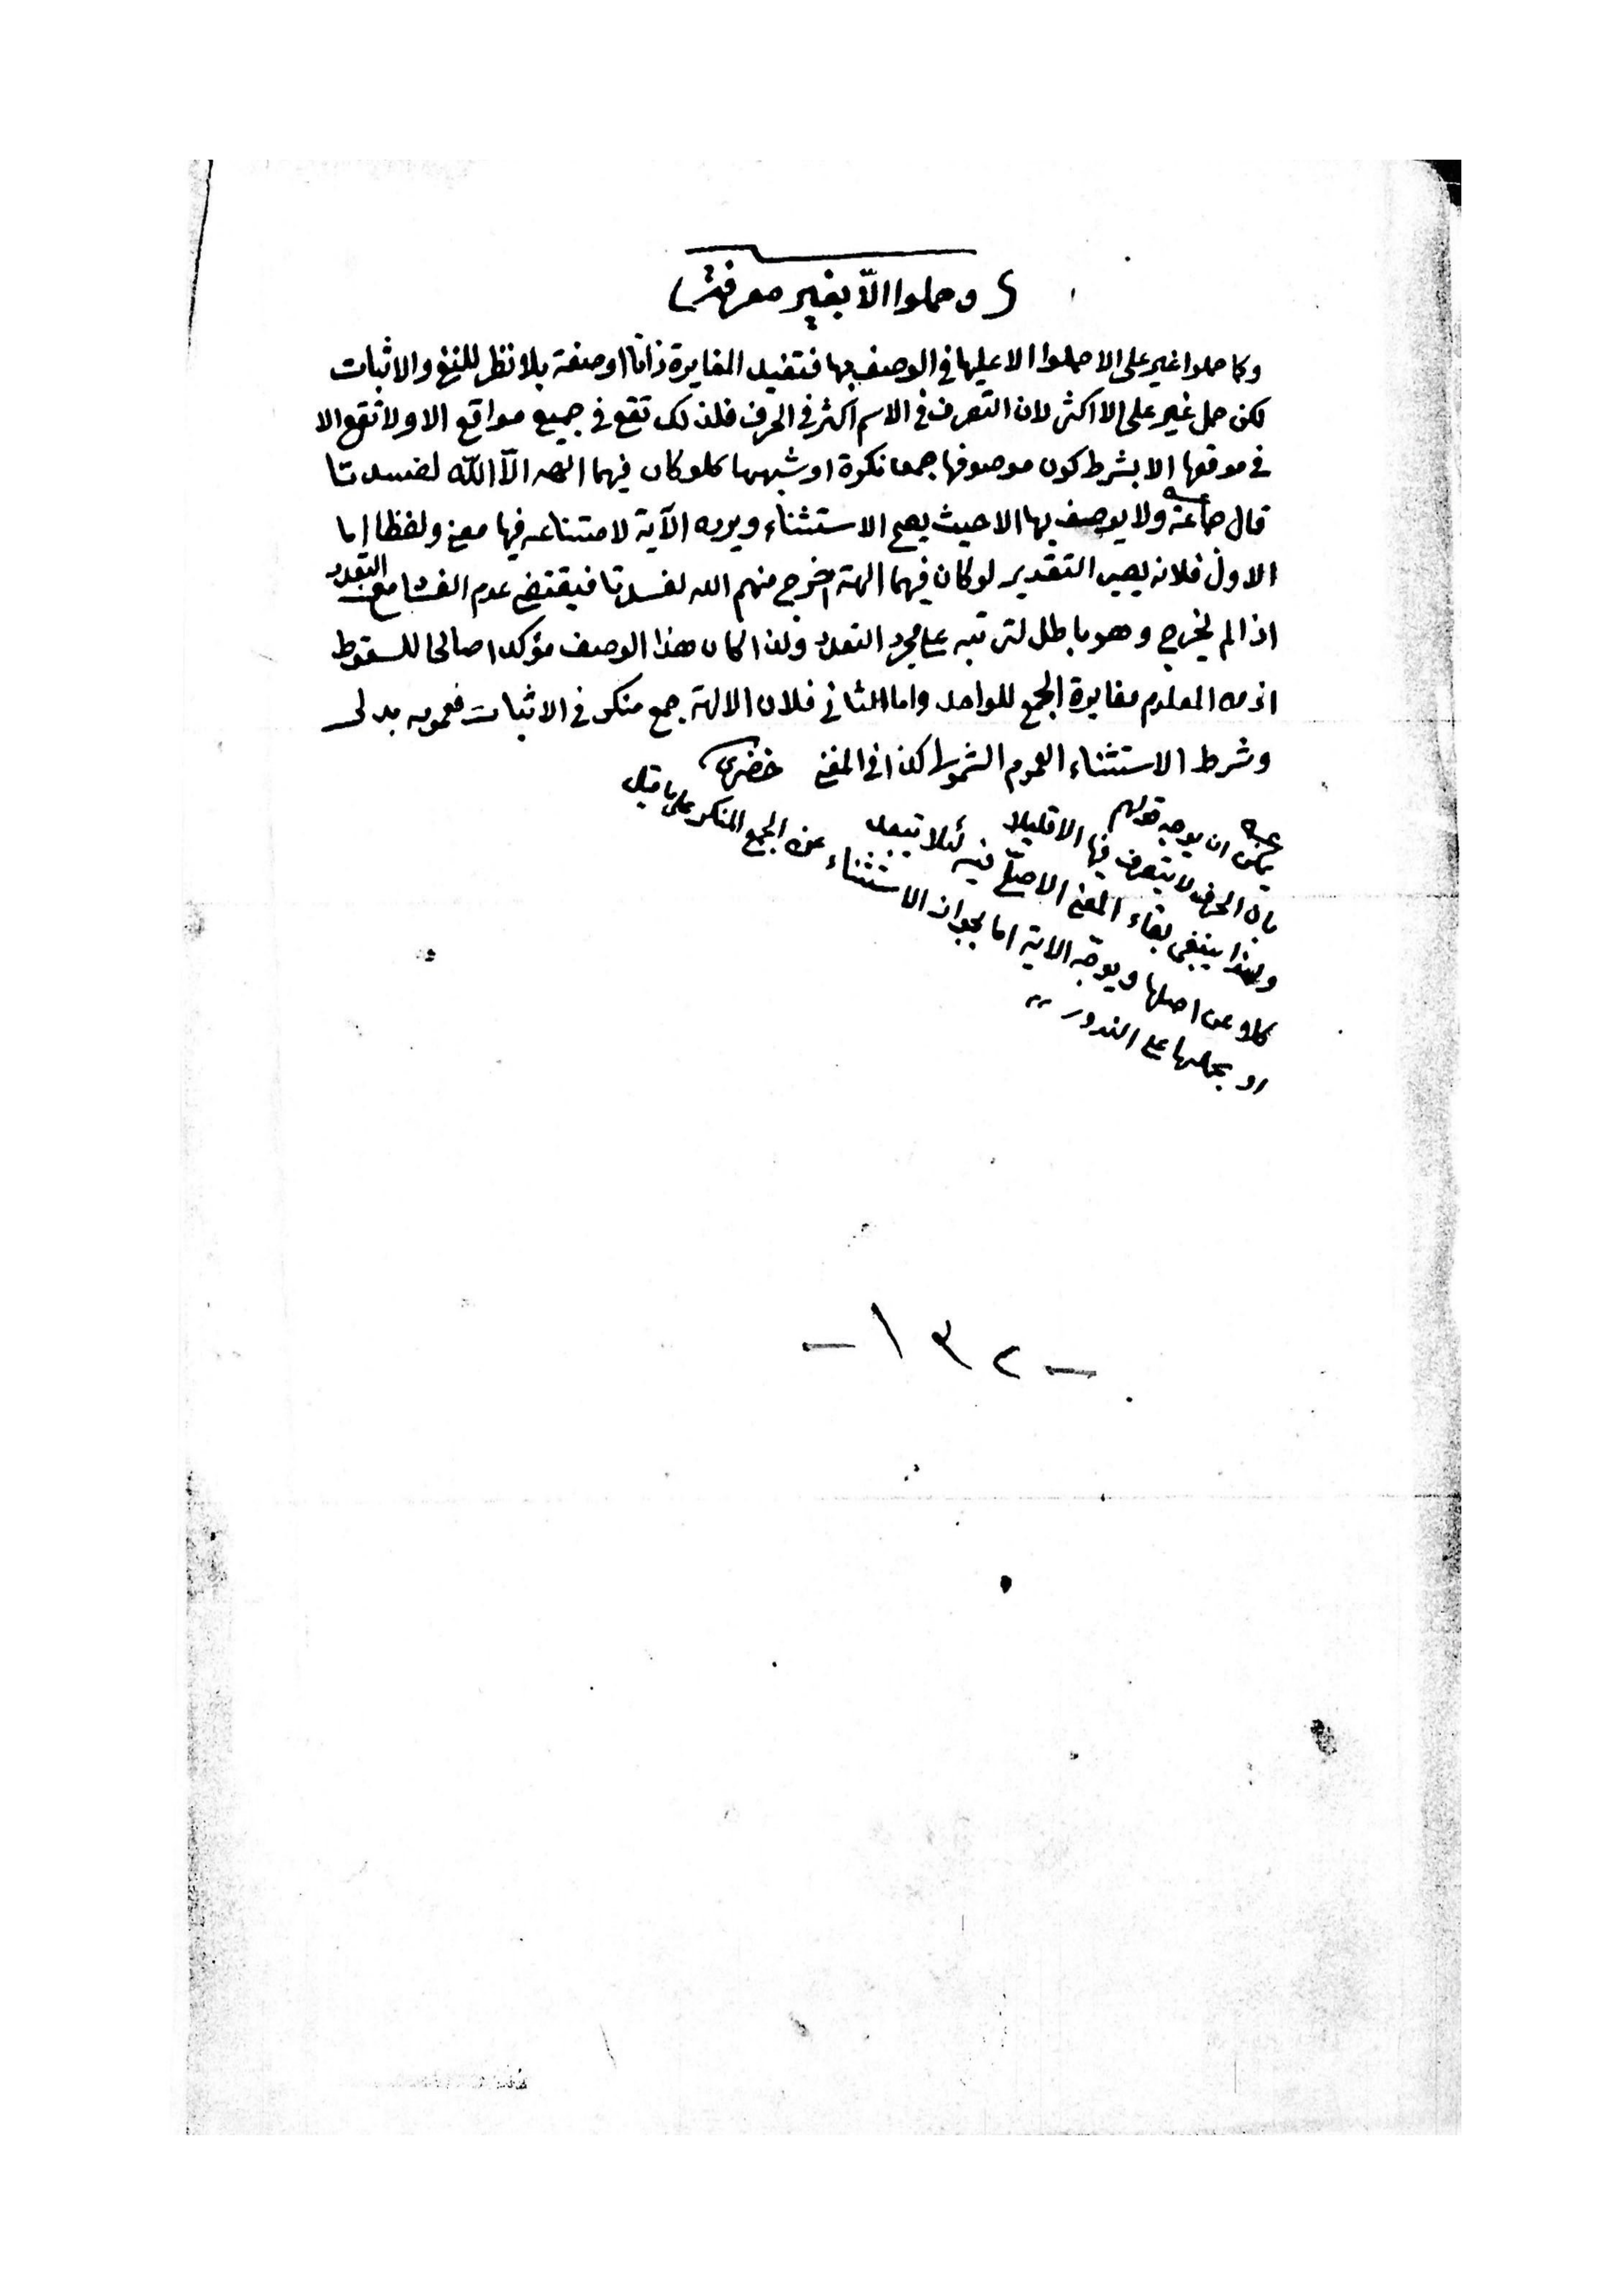 ( وحملوا إلّا بغير معرفة )
وكما حملوا غير على الا حملوا الا عليها في الوصف بها فتفيد المغايرة ذاتا او صفة بلا نظر للنفي والاثبات
لكن حمل غير على الا اكثر لان التصرف في الاسم اكثر في الحرف فلذلك تقع في جميع مواقع الا ولا تقع الا
في موقعها الا بشرط كون موصوفها جمعا نكرة او شبهها كلو كان فيهما الهة الّا الله لفسدتا
قال جماعة ولا يوصف بها الا حيث يصح الاستثناء ويرده الآية لامتناعه فيها معنى ولفظا اما
الاول فلانه يصير التقدير لو كان فيهما الهة اخرج منهم الله لفسدتا فيقتضي عدم الفساد مع التعدد
اذا لم يخرج وهو باطل لترتبه على مجرد التعدد ولذا كان هذا الوصف مؤكدا صالحا للسقوط
اذ من المعلوم مغايرة الجمع للواحد واما الثاني فلان الالهة جمع منكر في الاثبات فعمومه بدلى
وشرط الاستثناء العموم الشمولي كذا في المغني خضري
يمكن ان يوجه قولهم
بان الحرف لا يتصرف فيها الا قليلا
ولهذا ينبغي بقاء المعنى الاصلي فيه لئلا تبعد
كلا عن اصلها ويوجّه الاية اما بجواز الاستثناء عن الجمع المنكر على ما قيل
او بحملها على الندور
- ١٣٢ -